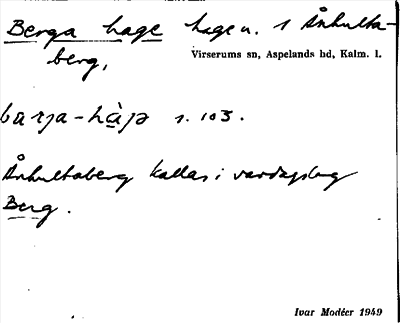 Berga hage hage u. 1 Ånhulta-
berg,
Virserums sn, Aspelands hd, Kalm. l.
barja-hàja s. 103.
Ånhultaberg kallas i vardagslag
Berg.
Ivar Modéer 1949